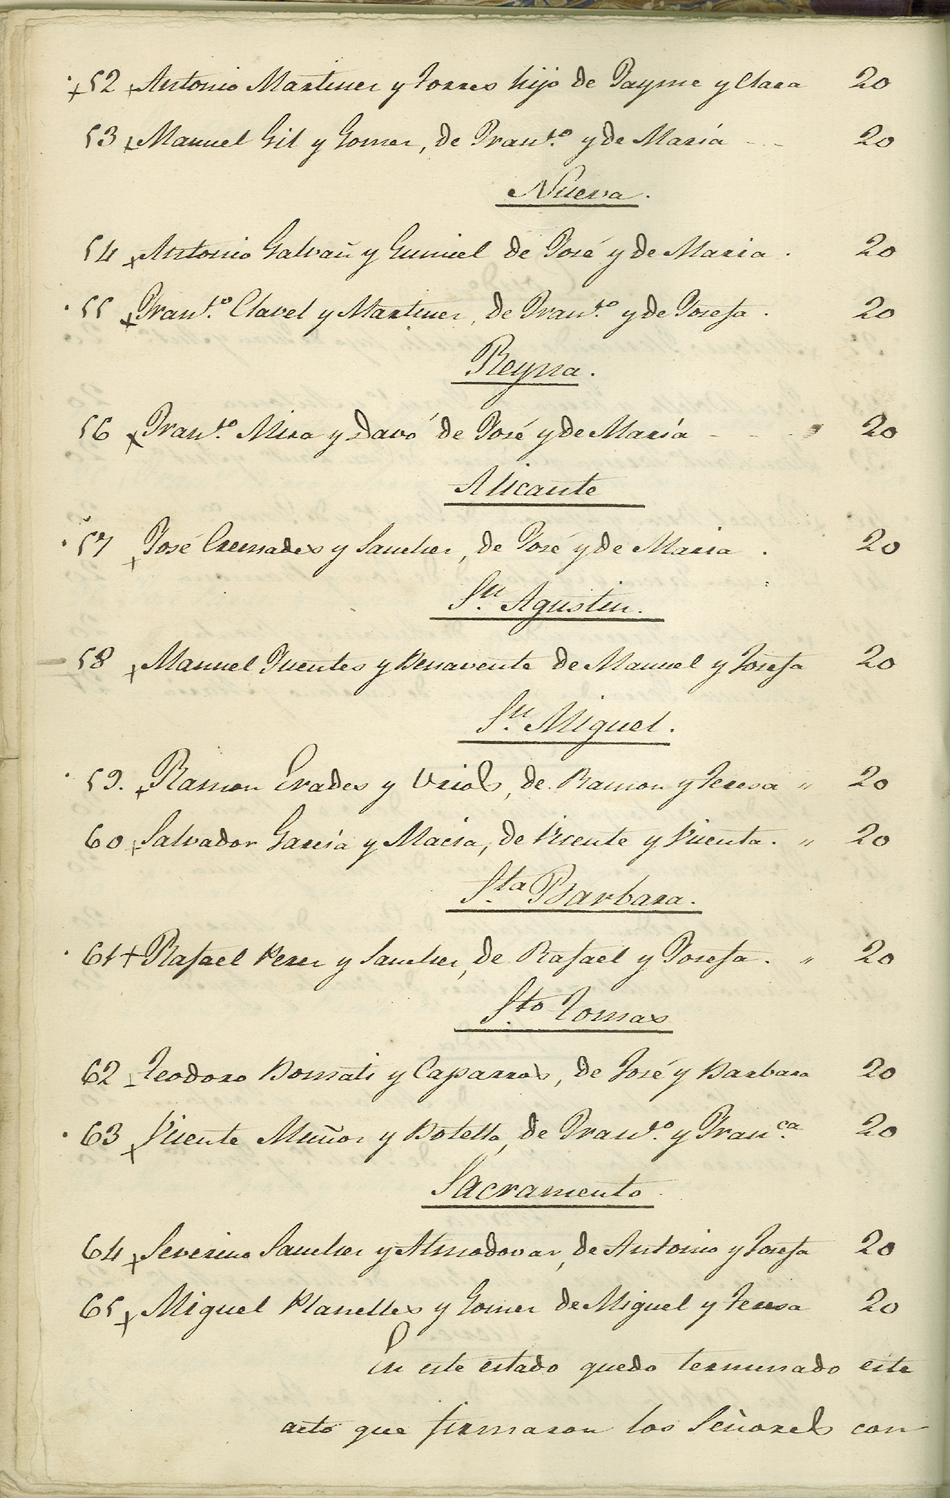 52 Antonio Martinez y Torres hijo de Jayme y Clara 20
53 Manuel Gil y Gomez, de Fran.co y de María 20
Nueva.
54 Antonio Galvañ y Gumiel de José y de Maria. 20
55 Fran.co Clavel y Martinez, de Fran.co y de Josefa. 20
Reyna.
56 Fran.co Mira y Davó de José y de María 20
Alicante
57 José Cremades y Sanchez, de José y de Maria. 20
Sn. Agustin.
58 Manuel Fuentes y Benavente de Manuel y Josefa 20
Sn. Miguel.
59. Ramon Erades y Uriols, de Ramon y Teresa " 20
60 Salvador García y Macia, de Vicente y Vicenta. " 20
Sta Barbara.
61 + Rafael Perez y Sanchez, de Rafael y Josefa. " 20
Sto Tomas
62 Teodoro Bonmati y Caparros, de José y Barbara 20
63 Vicente Muñoz y Botella, de Fran.co y Fran.ca 20
Sacramento.
64 Severino Sanchez y Almodovar, de Antonio y Josefa 20
65 Miguel Planelles y Gomez de Miguel y Teresa 20
En este estado quedo terminado este
acto que firmaron los Señores con